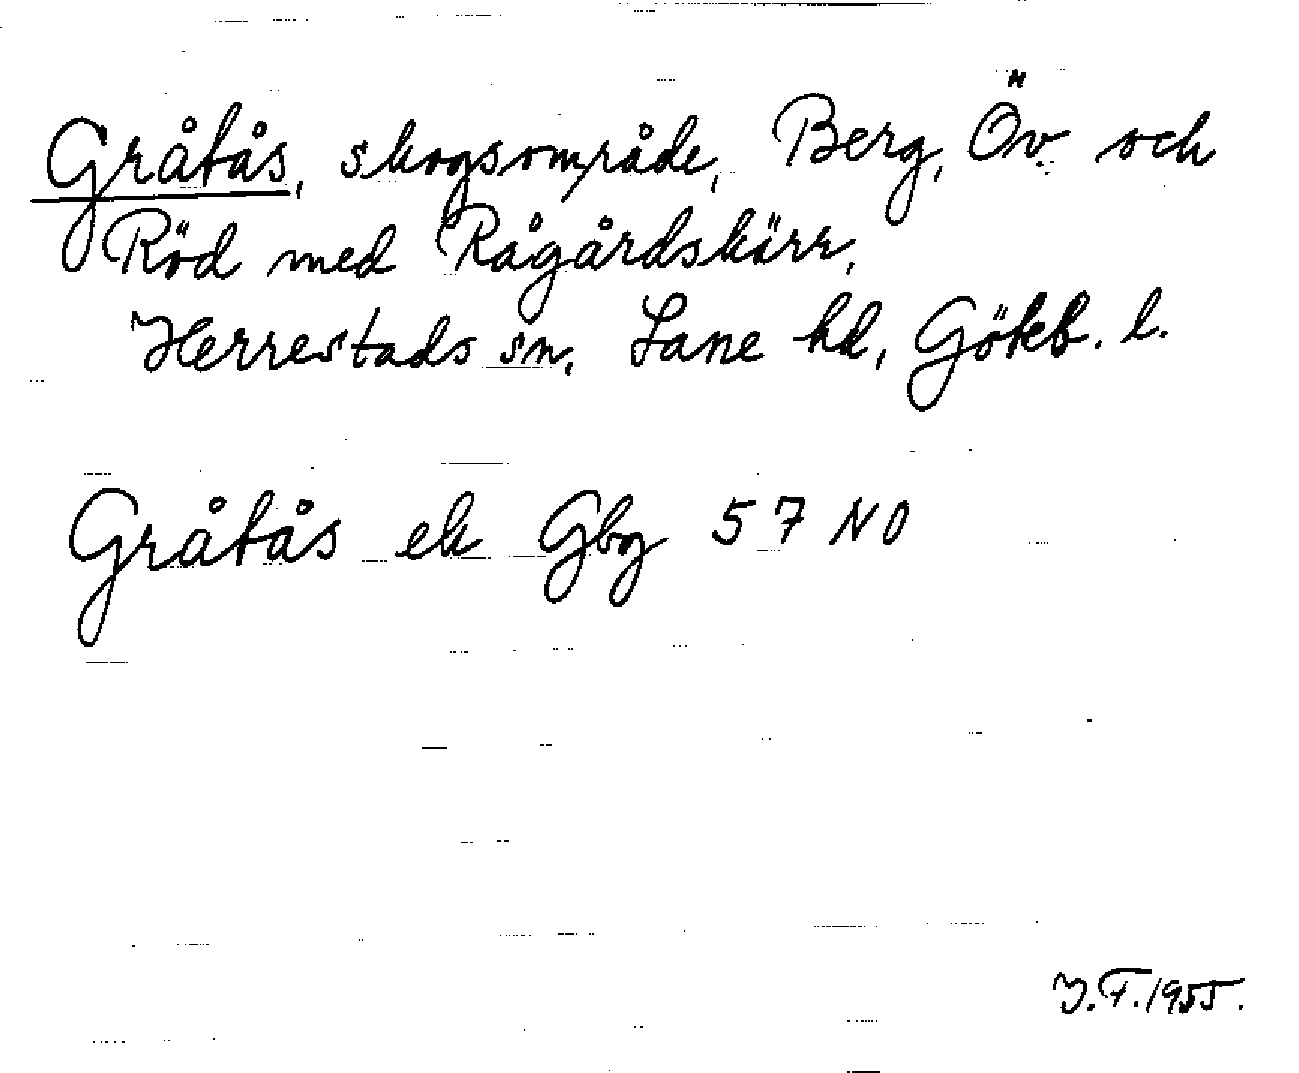 Gråtås, skogsområde, Berg, Öv. och
Röd med Rågårdskärr,
Herrestads sn, Lane hd, Gökb. l.
Gråtås ek Gbg 57 NO
J.F. 1955.